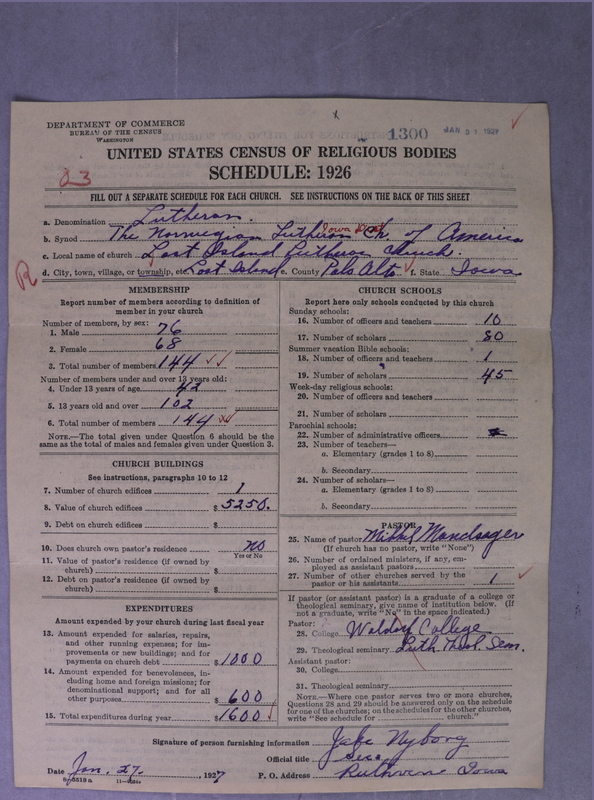 DEPARTMENT OF COMMERCE
BUREAU OF THE CENSUS
WASHINGTON
1300
JAN 31 1927
UNITED STATES CENSUS OF RELIGIOUS BODIES
SCHEDULE: 1926
83
FILL OUT A SEPARATE SCHEDULE FOR EACH CHURCH. SEE INSTRUCTIONS ON THE BACK OF THIS SHEET
a. Denomination Lutheran.
b. Synod The Norwegian Lutheran Iowa Dist Ch. of America
c. Local name of church Lost Island Lutheran Church.
R d. City, town, village, or township, etc Lost Island e. County Palo Alto f. State Iowa
MEMBERSHIP
Report number of members according to definition of
member in your church
Number of members, by sex:
1. Male 76
2. Female 68
3. Total number of members 144
Number of members under and over 13 years old:
4. Under 13 years of age 42
5. 13 years old and over 102
6. Total number of members 144
NOTE.—The total given under Question 6 should be the
same as the total of males and females given under Question 3.
CHURCH BUILDINGS
See instructions, paragraphs 10 to 12
7. Number of church edifices 1
8. Value of church edifices $5250.
9. Debt on church edifices $
10. Does church own pastor's residence No
Yes or No
11. Value of pastor's residence (if owned by
church) $
12. Debt on pastor's residence (if owned by
church) $
EXPENDITURES
Amount expended by your church during last fiscal year
13. Amount expended for salaries, repairs,
and other running expenses; for im-
provements or new buildings; and for
payments on church debt $1000
14. Amount expended for benevolences, in-
cluding home and foreign missions; for
denominational support; and for all
other purposes $600
15. Total expenditures during year $1600
CHURCH SCHOOLS
Report here only schools conducted by this church
Sunday schools:
16. Number of officers and teachers 10
17. Number of scholars 80
Summer vacation Bible schools:
18. Number of officers and teachers 1
19. Number of scholars 45
Week-day religious schools:
20. Number of officers and teachers
21. Number of scholars
Parochial schools:
22. Number of administrative officers
23. Number of teachers—
a. Elementary (grades 1 to 8)
b. Secondary
24. Number of scholars—
a. Elementary (grades 1 to 8)
b. Secondary
PASTOR
25. Name of pastor Mikkel Mandsager
(If church has no pastor, write "None")
26. Number of ordained ministers, if any, em-
ployed as assistant pastors
27. Number of other churches served by the
pastor or his assistants 1
If pastor (or assistant pastor) is a graduate of a college or
theological seminary, give name of institution below. (If
not a graduate, write "No" in the space indicated.)
Pastor:
28. College Waldorf College
29. Theological seminary Luth. Theol. Sem.
Assistant pastor:
30. College
31. Theological seminary
NOTE.—Where one pastor serves two or more churches,
Questions 28 and 29 should be answered only on the schedule
for one of the churches; on the schedules for the other churches,
write "See schedule for church."
Signature of person furnishing information Jake Nyborg
Official title Sec.
Date Jan. 27, 1927 P. O. Address Ruthven Iowa